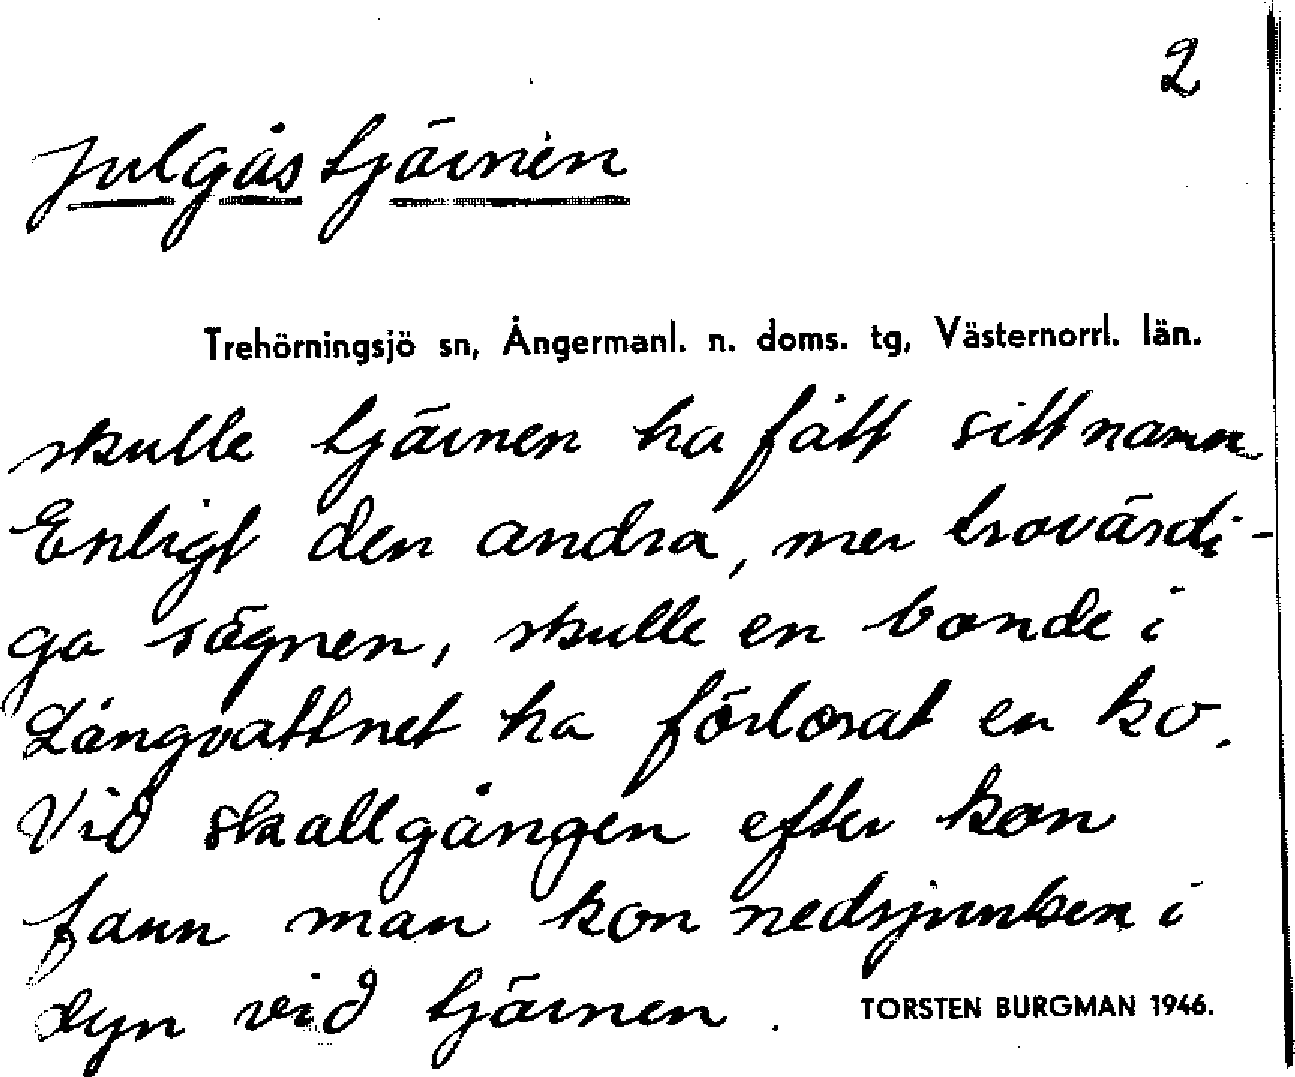 2
Julgåstjärnen
Trehörningsjö sn, Ångermanl. n. doms. tg, Västernorrl. län.
skulle tjärnen ha fått sitt namn
Enligt den andra, mer trovärdi-
ga sägnen, skulle en bonde i
Långvattnet ha förlorat en ko.
Vid skallgången efter kon
fann man kon nedsjunken i
dyn vid tjärnen.
TORSTEN BURGMAN 1946.